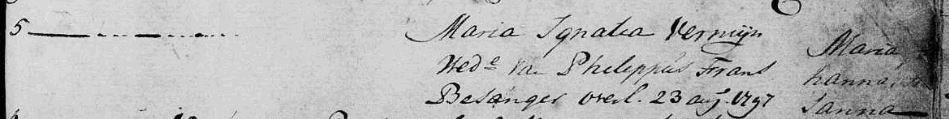 5 Maria Ignatia Vermijn Maria
Wed.e van Philippus Frans hanna,
Besanger overl. 23 aug. 1797 sanna